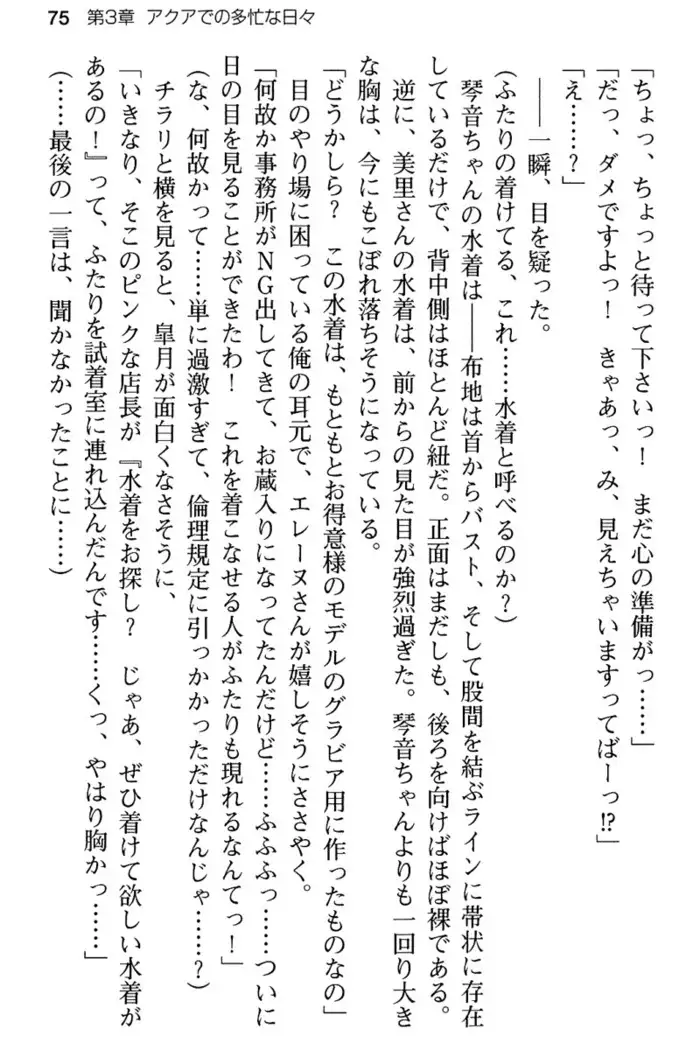 75 第3章 アクアでの多忙な日々
「ちょっ、ちょっと待って下さいっ！ まだ心の準備がっ……」
「だっ、ダメですよっ！ きゃあっ、み、見えちゃいますってばーっ!?」
「え……？」
――一瞬、目を疑った。
（ふたりの着けてる、これ……水着と呼べるのか？）
琴音ちゃんの水着は――布地は首からバスト、そして股間を結ぶラインに帯状に存在
しているだけで、背中側はほとんど紐だ。正面はまだしも、後ろを向けばほぼ裸である。
逆に、美里さんの水着は、前からの見た目が強烈過ぎた。琴音ちゃんよりも一回り大き
な胸は、今にもこぼれ落ちそうになっている。
「どうかしら？ この水着は、もともとお得意様のモデルのグラビア用に作ったものなの」
目のやり場に困っている俺の耳元で、エレーヌさんが嬉しそうにささやく。
「何故か事務所がＮＧ出してきて、お蔵入りになってたんだけど……ふふふっ……ついに
日の目を見ることができたわ！ これを着こなせる人がふたりも現れるなんてっ！」
（な、何故かって……単に過激すぎて、倫理規定に引っかかっただけなんじゃ……？）
チラリと横を見ると、皐月が面白くなさそうに、
「いきなり、そこのピンクな店長が『水着をお探し？ じゃあ、ぜひ着けて欲しい水着が
あるの！』って、ふたりを試着室に連れ込んだんです……くっ、やはり胸かっ……」
（……最後の一言は、聞かなかったことに……）